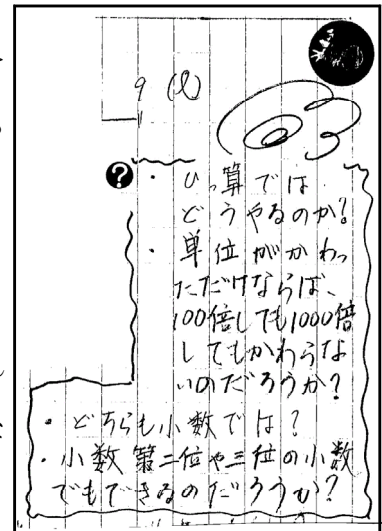 9 (l)
?
・ひっ算では
どうやるのか?
・単位がかわっ
ただけならば、
100倍しても1000倍
してもかわらな
いのだろうか?
・どちらも小数では?
・小数第二位や三位の小数
でもできるのだろうか?